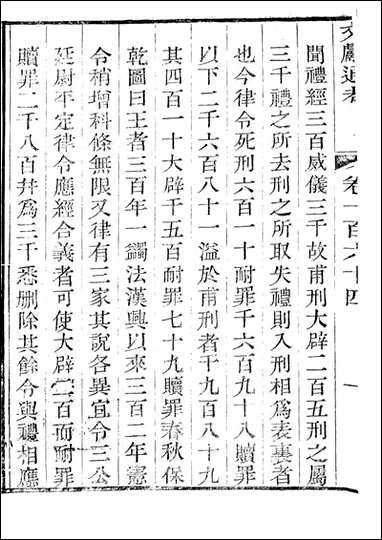 文獻通考 卷一百六十四
聞禮經三百威儀三千故甫刑大辟二百五刑之屬
三千禮之所去刑之所取失禮則入刑相爲表裏者
也今律令死刑六百一十耐罪千六百九十八贖罪
以下二千六百八十一溢於甫刑者千九百八十九
其四百一十大辟千五百耐罪七十九贖罪春秋保
乾圖曰王者三百年一蠲法漢興以來三百二年憲
令稍增科條無限又律有三家其說各異宜令三公
延尉平定律令應經合義者可使大辟二百而耐罪
贖罪二千八百幷爲三千悉删除其餘令與禮相應